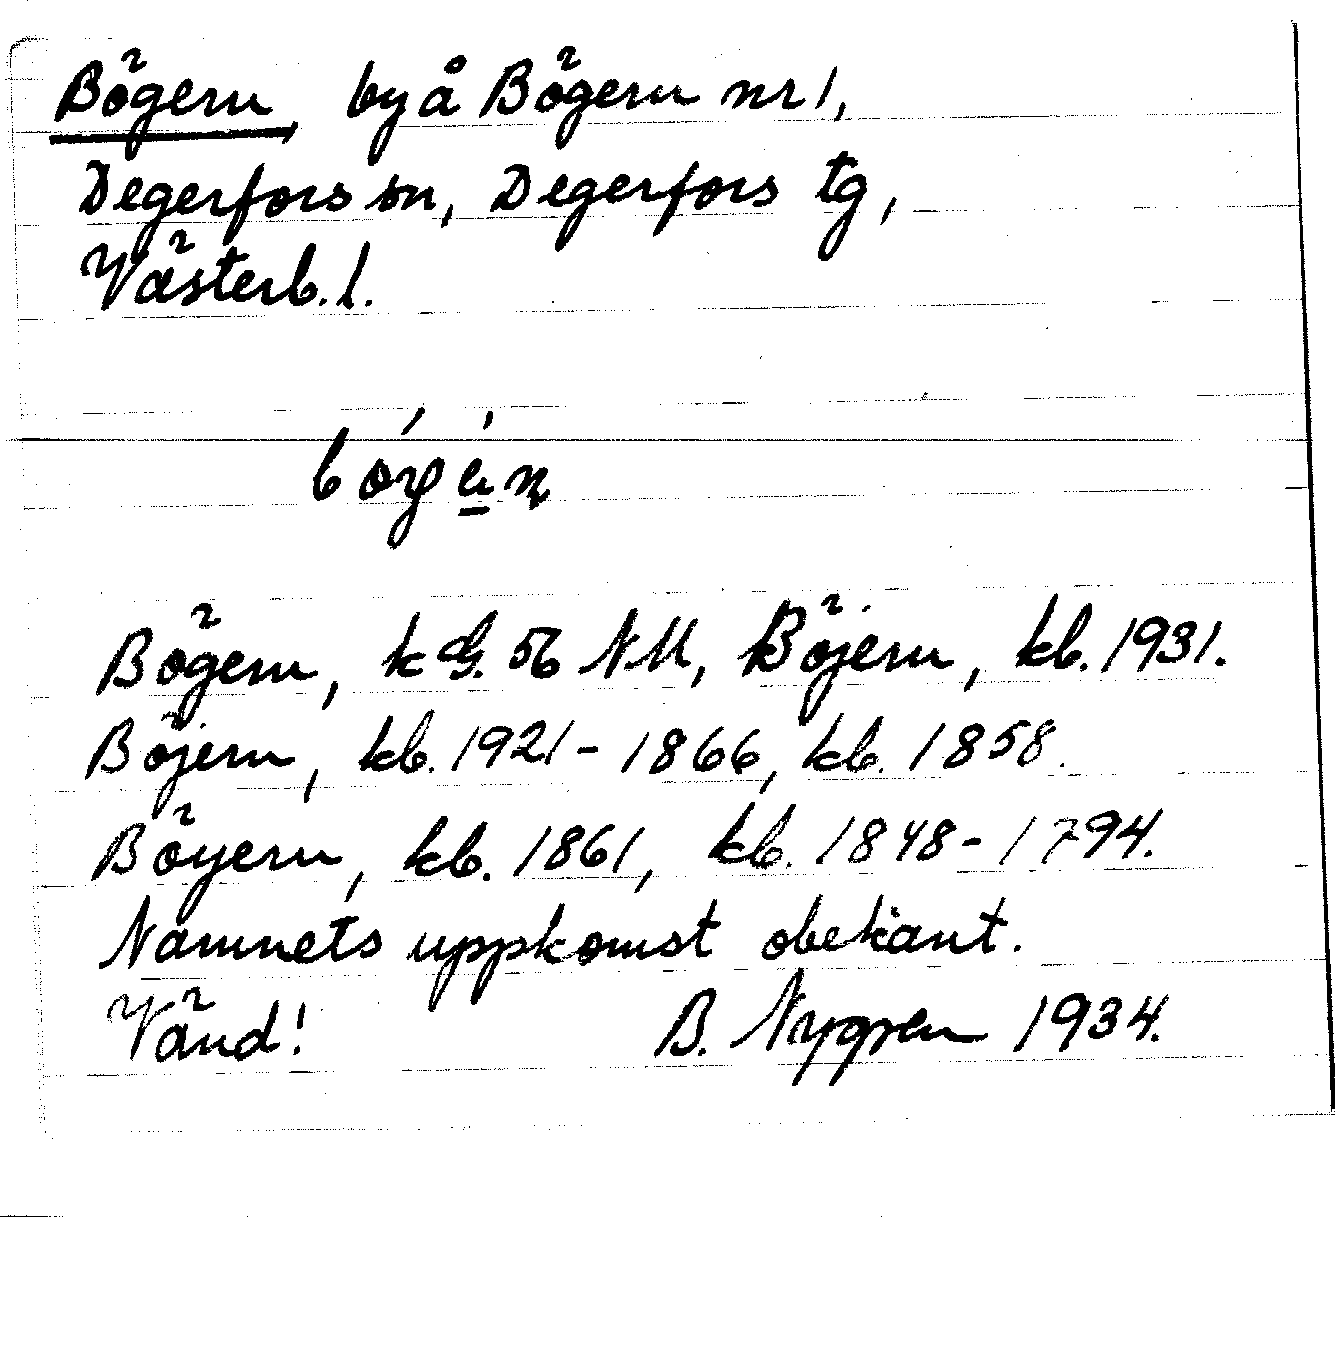 Bögern, by å Bögern nr 1,
Degerfors sn, Degerfors tg,
Västerb. l.
Bögern, k G. 56 NM, Böjern, kb. 1931.
Böjern, kb. 1921 - 1866, kb. 1858.
Böyern, kb. 1861, kb. 1848 - 1794.
Namnets uppkomst obekänt.
Vänd! B. Nygren 1934.